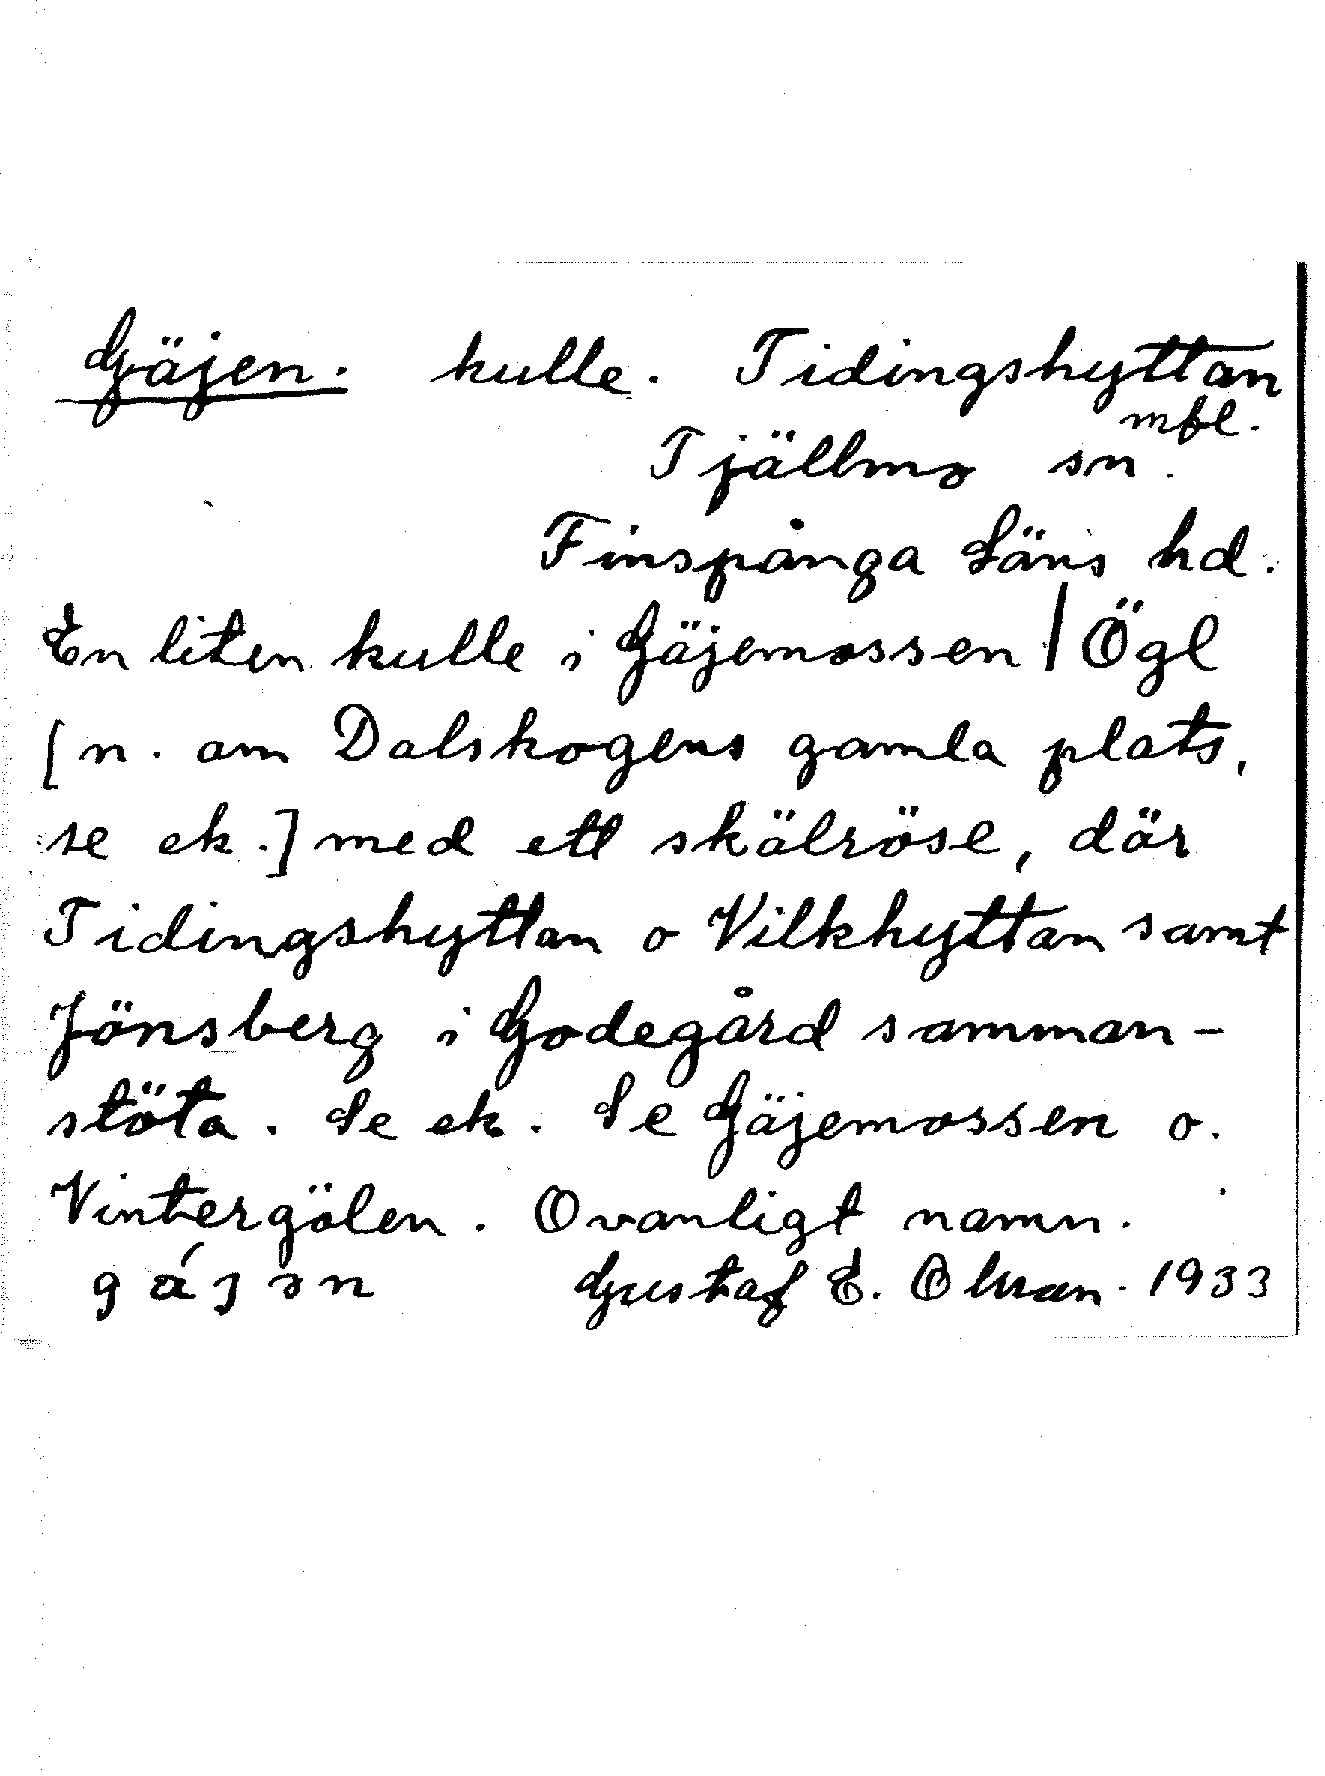 Gäjen. kulle. Tidingshyttan
mfl.
Tjällmo sn.
Finspånga Läns hd.
En liten kulle i Gäjemossen | Ögl
[n. om Dalskogens gamla plats,
se ek.] med ett skälröse, där
Tidingshyttan o Vilkhyttan samt
Jönsberg i Godegård samman-
stöta. Se ek. Se Gäjemossen o.
Vintergölen. Ovanligt namn.
gájən Gustaf E. Olsson. 1933